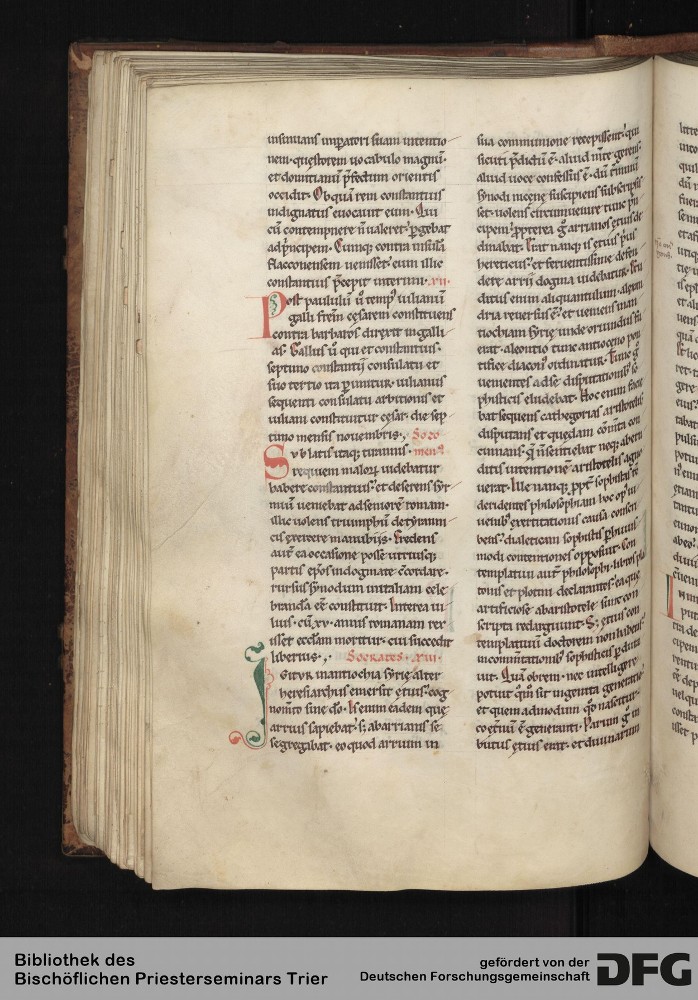 insinuans imperatori suam intentio
nem. questorem uocabulo magnū.
et domitianū p̄fectum orientis
occidit. Ob quā rem constantius
indignatus euocauit eum. Qui
cū contempnere n̄ ualeret. pgebat
ad p̄ncipem. Cumq; contra insulā
flaccouensem uenisset. eum illic
constantius p̄cepit interimi. xii.
Post paululū u̅ temp᷒ iulianū
galli frēm cesarem constituens
contra barbaros direxit in galli
as. Gallus u̅ qui et constantius.
septimo constantij consulatu et
suo tertio ita pimitur. iulianus
sequenti consulatu arbitionis et
iuliani constituitur cesar. die sep
timo mensis nouembris. Sozo
Sublatis itaq; tirannis. men᷒
requiem malorū uidebatur
habere constantius. et deserens syr
miū ueniebat ad seniorē romam.
illic uolens triumphū de tyranni
cis exercere manubijs. Credens
autē ea occasione posse utriusq;
partis epōs in dogmate ɔcordare.
rursus synodum in italiam cele
brandā eē constituit. Interea iu
lius. cū xv. annis romanam rex
isset eccłam moritur. cui succedit
liberius. Socrates. xiii.
Igitur in antiochia syrię alter
heresiarchus emersit ętius. cog
nomto sine do. Is enim eadem quę
arrius sapiebat. s; ab arrianis se
segregabat. eo quod arrium in
sua communione recepissent. qui
sicuti p̄dictū ē. aliud in mte gerens.
aliud uoce confessus ē. dū tminū
synodi nicene suscipiens subscripsis
set. uolens circumuenire tunc p̄n
cipem. propterea g̊ arrianos ętius de
dinabat. Erat nanq; is ętius p̄us
hereticus. et feruentissime defen
dere arrii dogma uidebatur. Eru
ditus enim aliquantulum. alexan
dria reuersus ē. et ueniens in an
tiochiam syrię unde oriundus fu
erat. a leontio tunc antioceno pon
tifice diacon᷒ ordinatur. Tunc g̊
uementes ad se disputationib᷒ so
phisticis eludebat. Hoc enim facie
bat sequens cathegorias aristotelis
disputans et quędam cōmta con
cinnans. q̄ n̄ sentiebat neq; aberu
ditis intentionē aristotelis agno
uerat. Ille nanq; ppt̄ sophistas tē
deridentes philosophiam hoc op᷒ iu
uenib᷒ exercitationis causa conscri
bens. dialeticam sophistis p hui᷒
modi contentiones opposuit. Con
templatiui autē philosophi. libros pla
tonis et plotini declarantes. ea quę
artificiose ab aristotele sunt con
scripta redarguunt. S; ętius con
templatiuū doctorem non habens.
in commutationib᷒ sophisticis pdura
uit. Quam obrem. nec intelligere
potuit qmo sit ingenita generatio.
et quem admodum q̊ nascitur.
coętnū ē generanti. Parum g̊ in
butus ętius erat. et diuinarum
Bibliothek des
Bischöflichen Priesterseminars Trier
gefördert von der
Deutschen Forschungsgemeinschaft
DFG